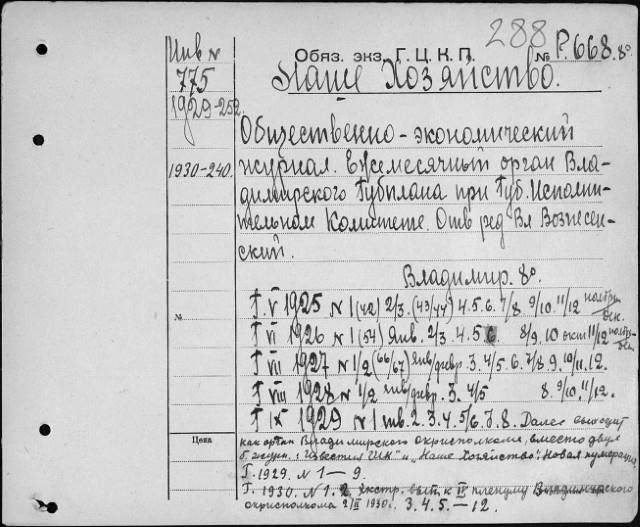 288
Инв №
Обяз. экз. Г.Ц.К.П. № Р.668. 8º
775
Наше Хозяйство.
1929-252
Общественно-экономический
1930-240. журнал. Ежемесячный орган Вла-
димирского Губплана при Губ. Исполни-
тельном Комитете. Отв ред Вл Вознесен-
ский.
Владимир. 8º.
Г. V 1925 № 1 (42) 2/3. (43/44) 4. 5. 6. 7/8 9/10. 11/12 ноябрь-дек.
№ Г VI 1926 № 1 (54) Янв. 2/3 4. 5 6 8/9. 10 окт 11/12 ноябрь-дек.
Г VII 1927 № 1/2 (66/67) янв/февр 3. 4/5. 6. 7/8. 9. 10/11. 12.
Г VIII 1928 № 1/2 янв/февр. 3. 4/5 8. 9/10. 11/12.
Г IX 1929 № 1 янв. 2. 3. 4. 5/6. 7. 8. Далее выходит
Цена как орган Владимирского окрисполкома, вместо двух
б. журн.: "Известия ГИК" и "Наше Хозяйство". Новая нумерация
Г. 1929. № 1-9.
Г. 1930. № 1. 2, экстр. вып. к II пленуму Владимирского
окрисполкома 2/II 1930. 3. 4. 5.-12.